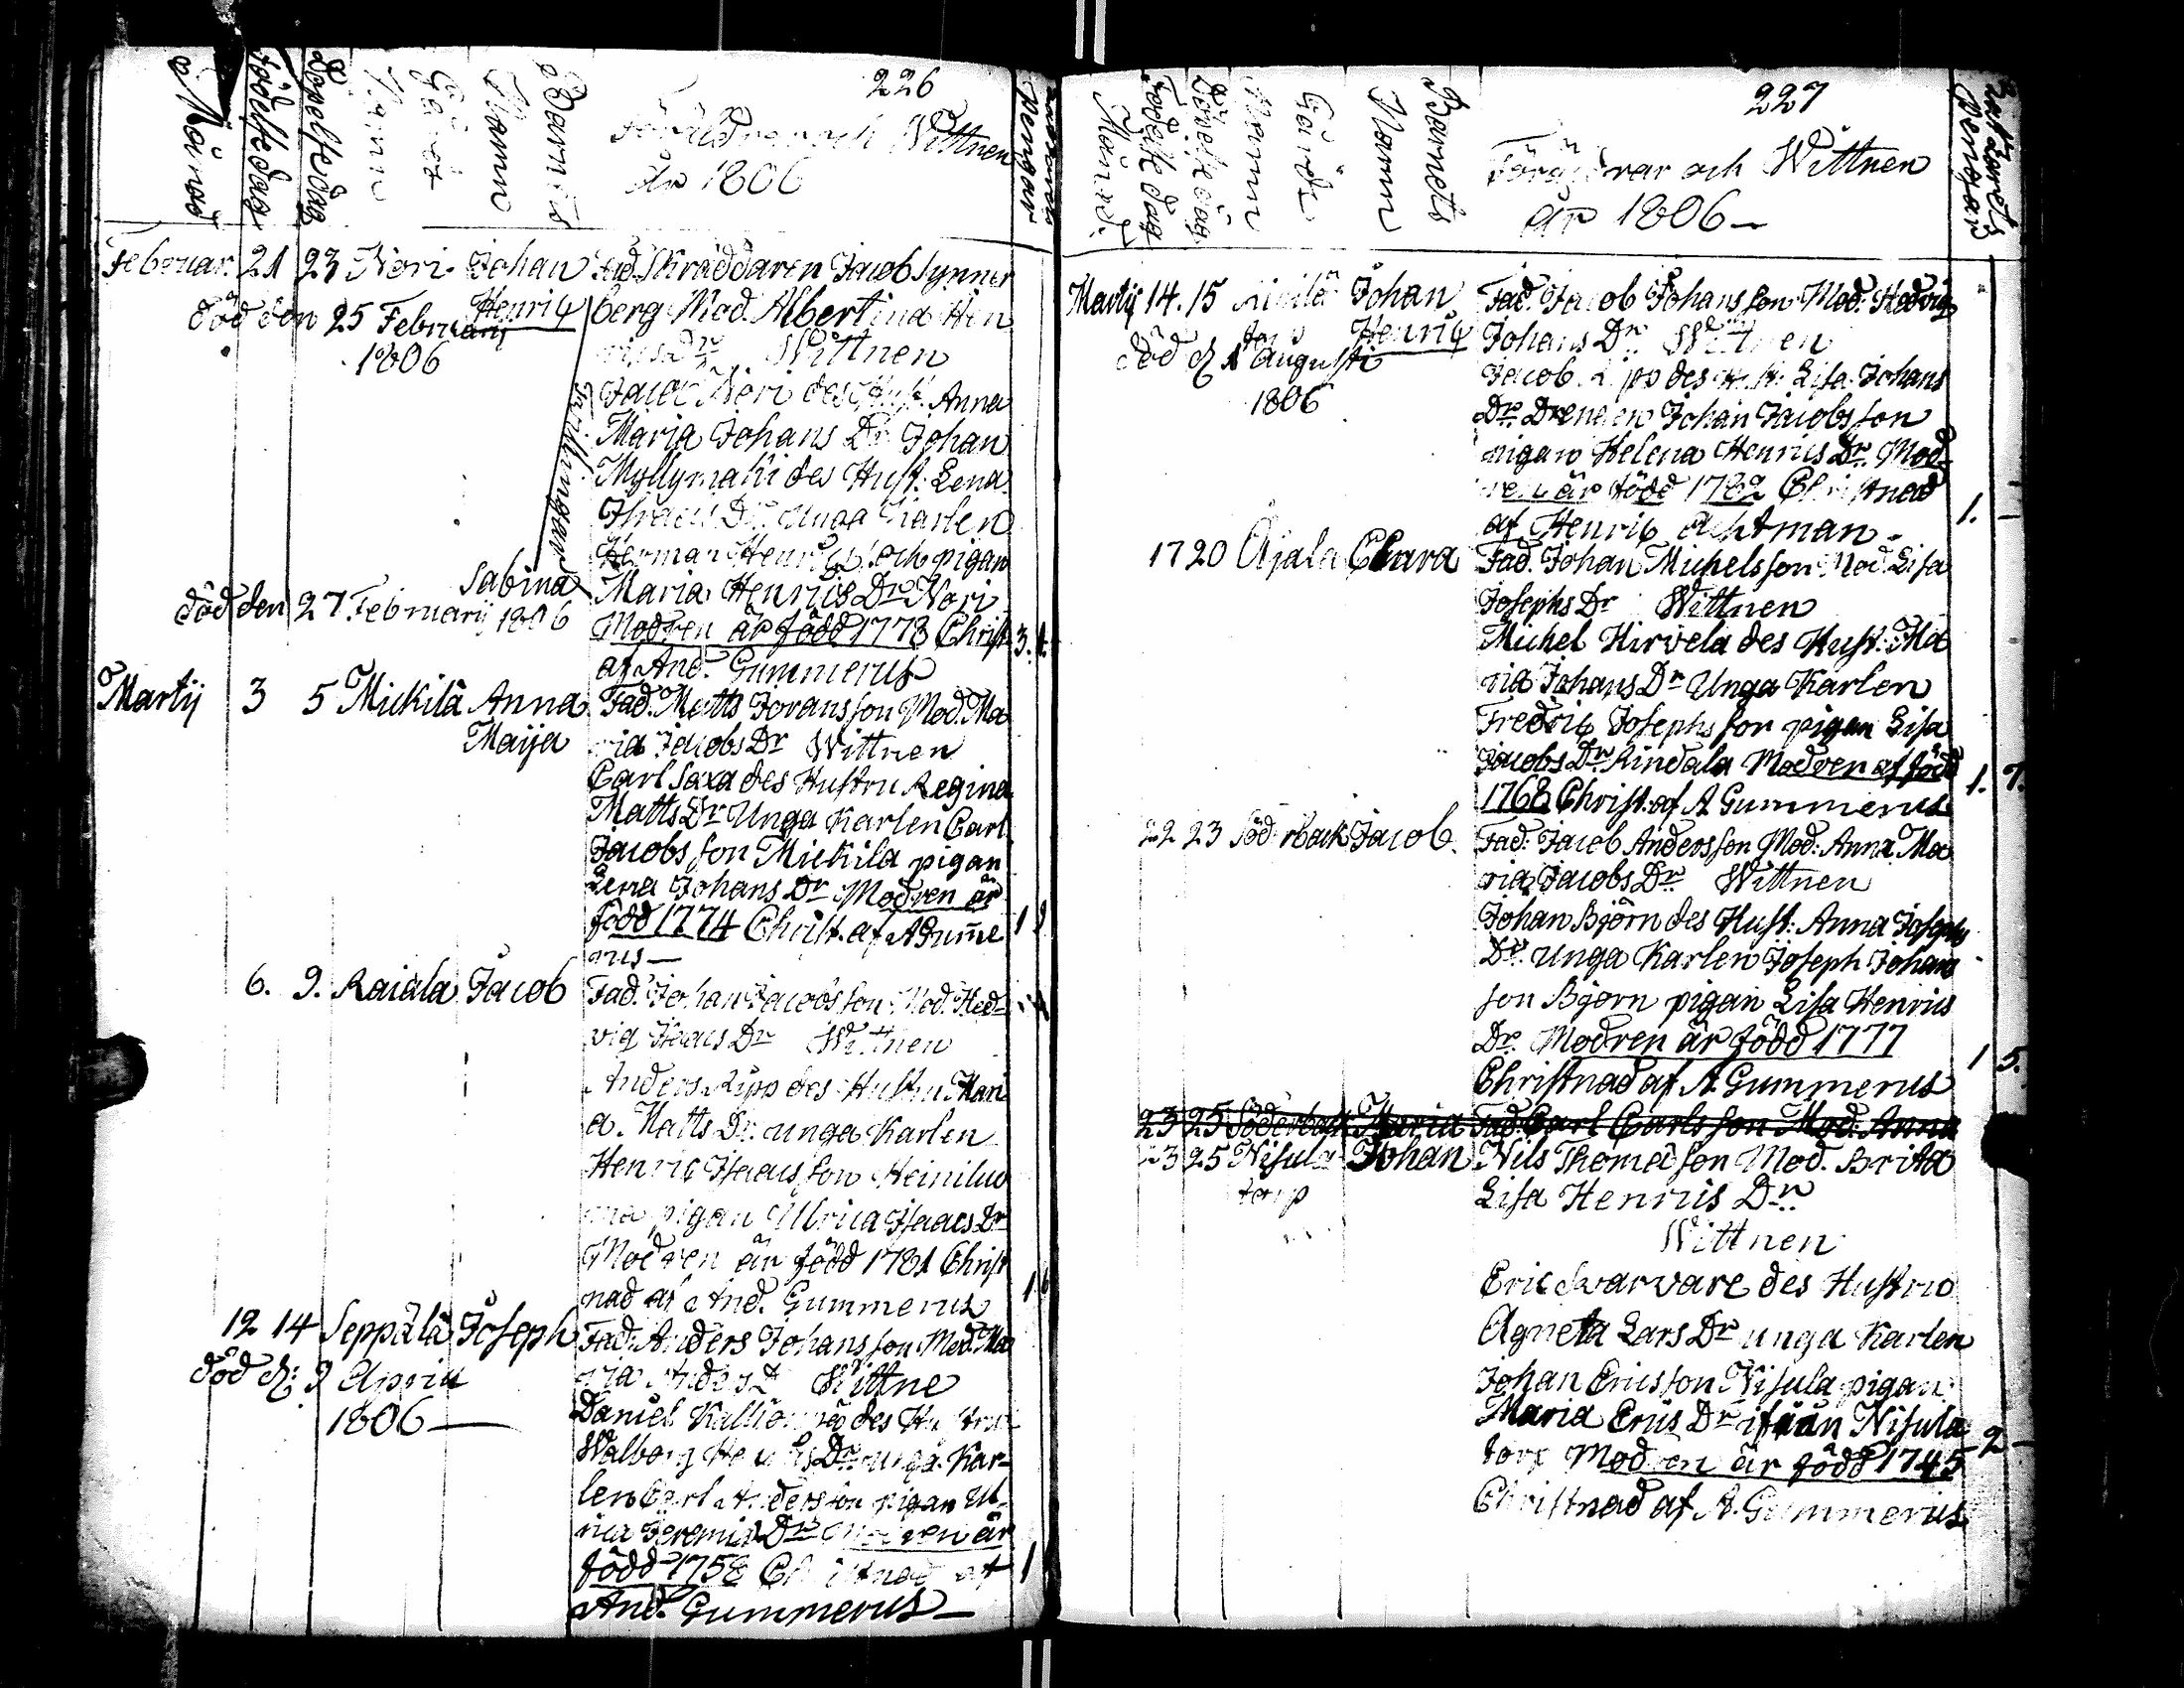 226
Månad
Födelse dag
Döpelse dag
Namn
Gårds
Namn
Barnets
Föräldrar och Wittnen
år 1806
Pengar
Februar. 21 23 Nori Johan Fad. Skräddaren Jacob Synner
Henric berg Mod. Albertina Hen
död den 25 Februarij
rics Dr Wittnen
1806
Jacob Nori des Hust. Anna
Maria Johans Dr Johan
Myllymaki des Hust. Lena
Isracs Dr unga Karlen
Herman Henrics och pigan
Sabina Maria Henrics Dr Nori
död den 27 Februarij 1806
Modren är född 1773 Christ 3.
af And. Gummerus
Martij 3 5 Mickilä Anna Fad. Matts Jöransson Mod. Ma
Maija ria Jacobs Dr Wittnen
Carl Saxa des Hustru Regina
Matts Dr Unga Karlen Carl
Jacobsson Mickila pigan
Lena Johans Dr Modren är
född 1774 Christ. af A Gume
rus
6. 9. Raiala Jacob Fad. Johan Jacobsson Mod. Hed-
vig Isacs Dr Wittnen
Anders Ripp des Hustru Mari
a. Matts Dr unga Karlen
Henric Isaacsson Heiniluo
ma pigan Ulrica Isaacs Dr
Modren är född 1781 Christ
nad af And. Gummerus
12 14 Seppälä Joseph Fad. Anders Johansson Mod. Ma
död d: 9 April
ria Anders D Wittne
1806
Daniel des Hustru
Walborg Henrics Dr unga Kar-
len Carl Andersson pigan Ul-
rica Jeremia Dr Modren är
född 1758 Christnad af 1
And. Gummerus
227
Månad.
Födelse dag
Döpelse dag
Namn
Gårds
Namn
Barnets
Föräldrar och Wittnen
år 1806
Pengar
Martij 14. 15 Johan Fad. Jacob Johansson Mod. Hedvig
Henric Johans Dr Wittnen
död d 1 Augusti
1806
Jacob Ripp des Hust. Lisa Johans
Dr Drengen Johan Jacobsson
pigan Helena Henrics Dr. Mod-
ren är född 1782 Christnad
af Henric Achtman 1. –
17 20 Äjälä Clara Fad. Johan Michelsson Mod. Lisa
Josephs Dr Wittnen
Michel Hirvela des Hust: Ma
ria Johans Dr Unga Karlen
Fredric Josephsson pigan Lisa
Jacobs Dr Rindala Modren af född
1768 Christ. af A Gummerus 1. 7.
22 23 Söderback Jacob. Fad: Jacob Andersson Mod: Anna Ma
ria Jacobs Dr Wittnen
Johan Björn des Hust: Anna Josephs
Dr. Unga Karlen Joseph Johans
son Bjorn pigan Lisa Henrics
Dr. Modren är född 1777
Christnad af A Gummerus 1 5.
23 25 Söderback Maria Fad. Carl Carlsson Mod. Anna
23 25 Nisula Johan Nils Thomasson Mod. Brita
torp Lisa Henrics Dr
Wittnen
Eric Svarvare des Hustru
Agneta Lars Dr unga Karlen
Johan Ericsson Nisula pigan
Maria Erics Dr ifrån Nisula
torp Modren är född 1745 2 –
Christnad af A. Gummerus